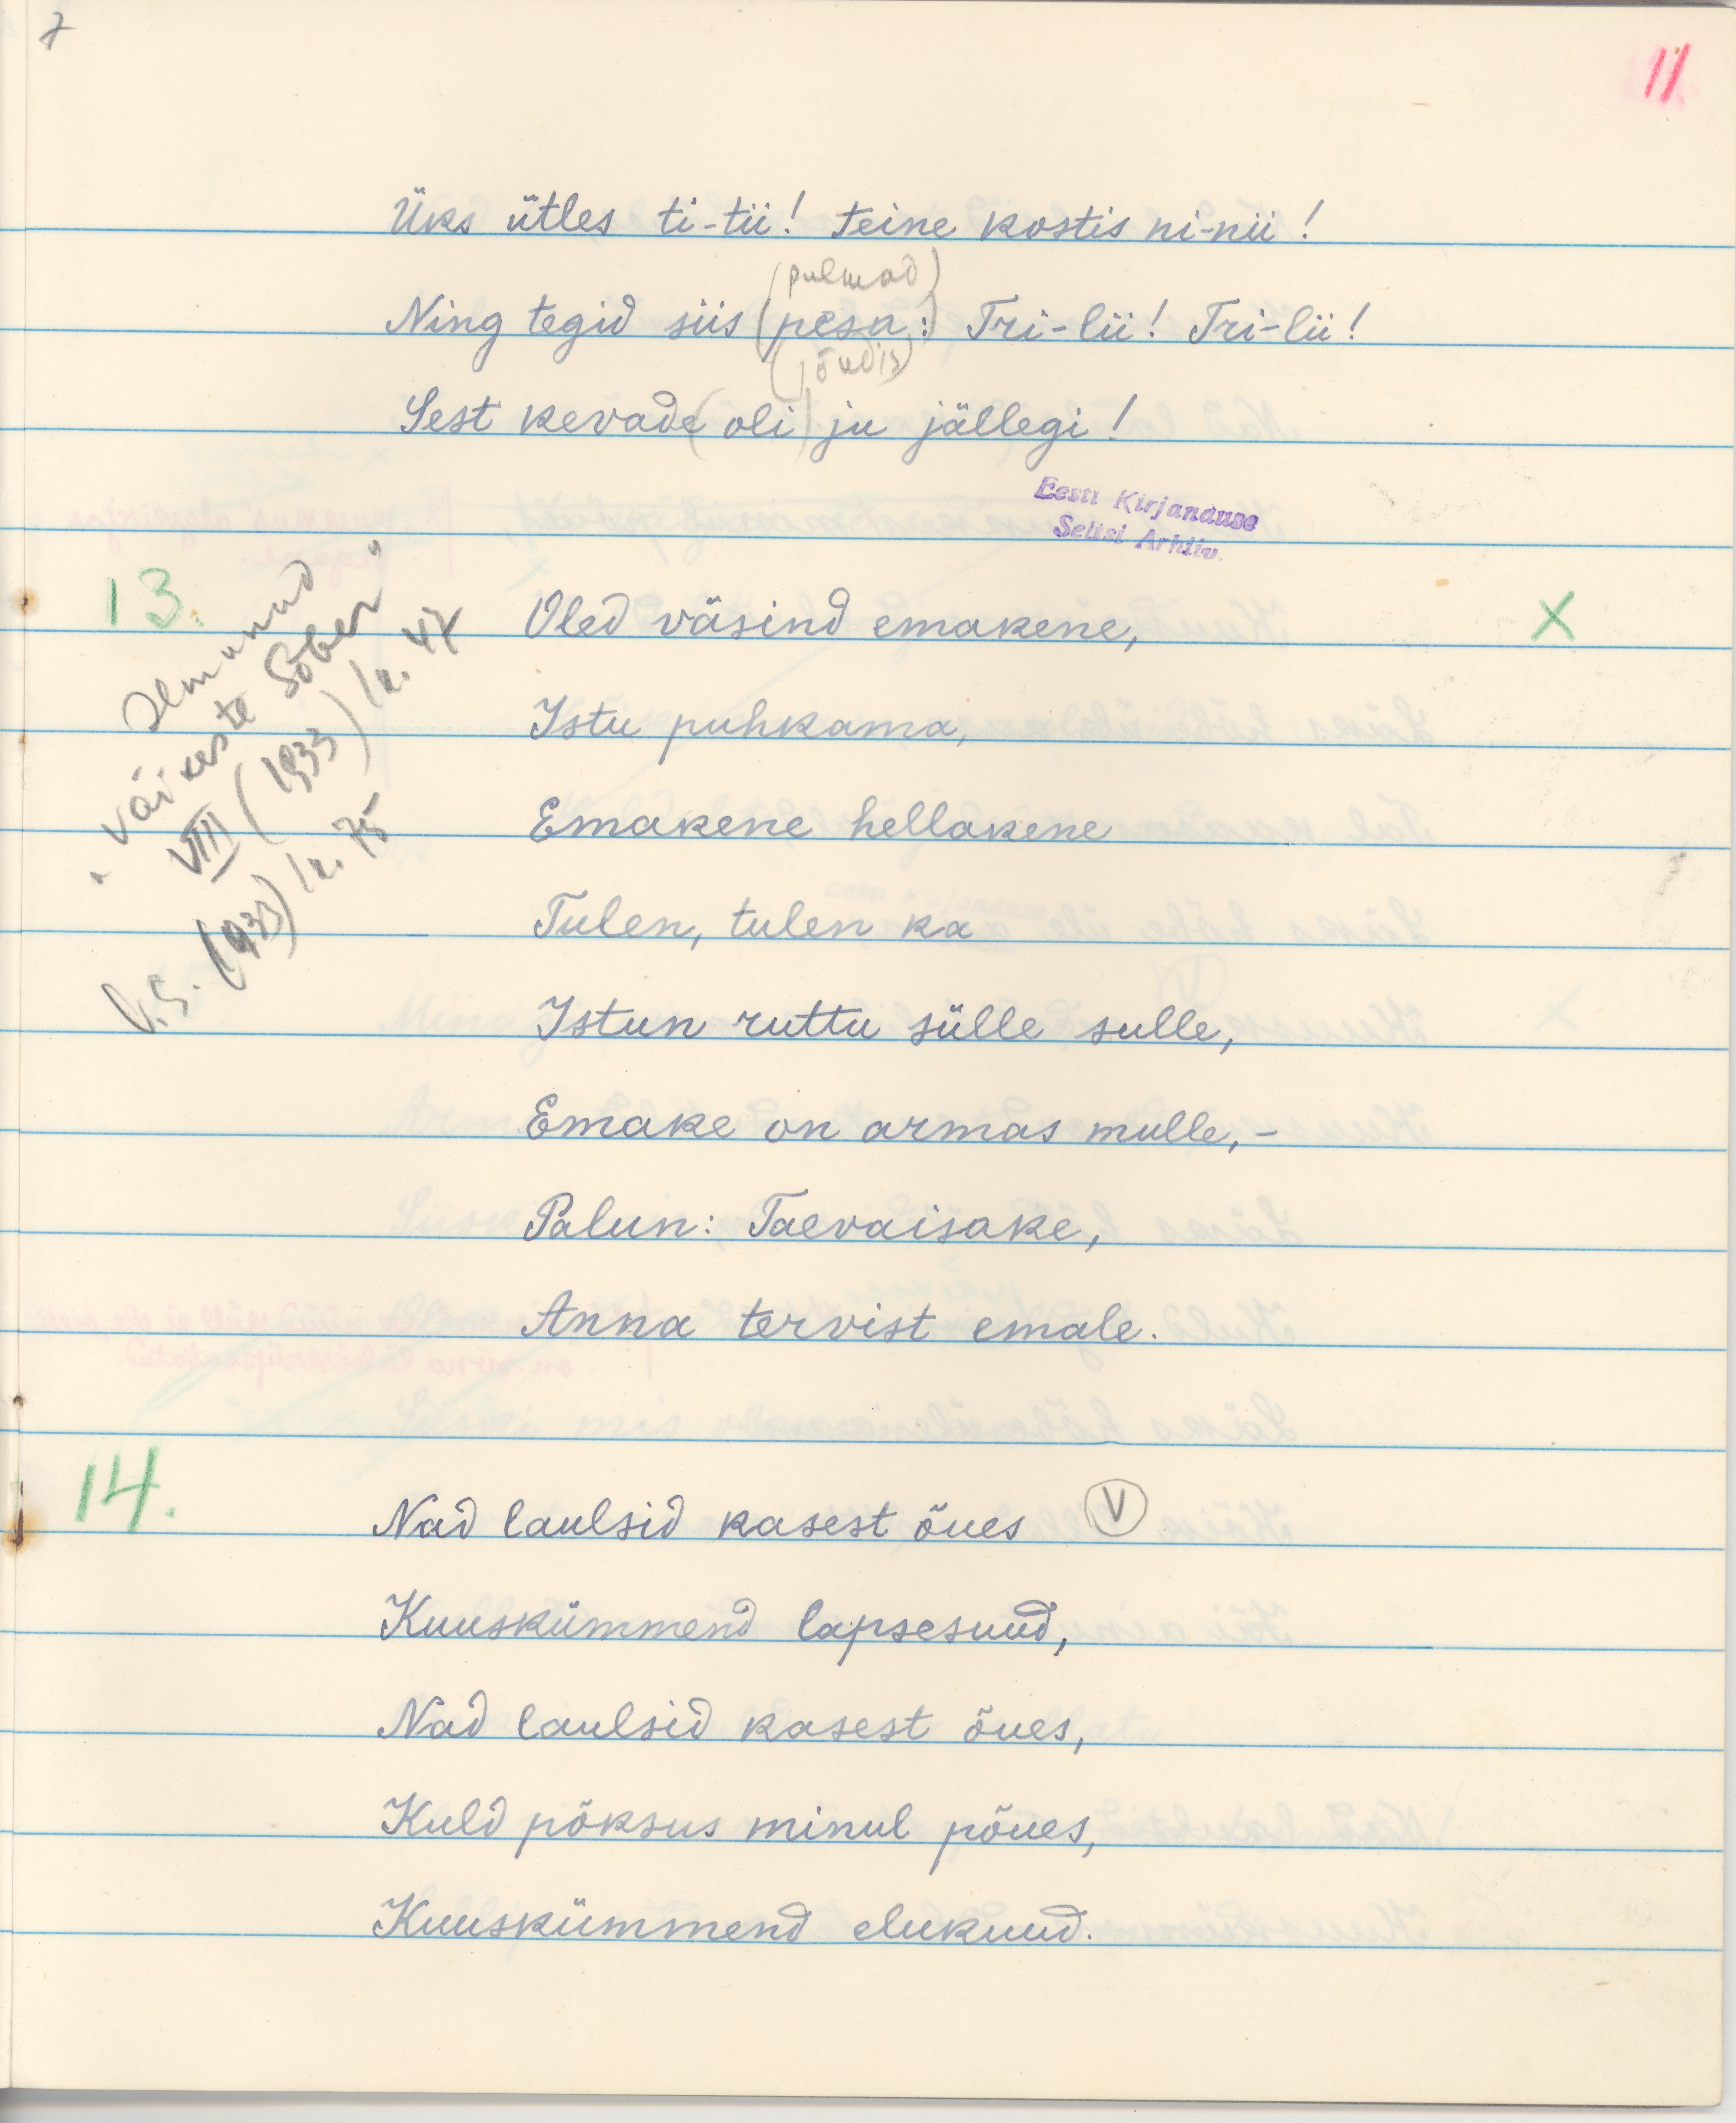 7
11
Üks ütles ti-tii! Teine kostis ni-nii!
(pulmad)
Ning tegid siis (pesa:) Tri-lii! Tri-lii!
(jõudis)
Sest kevade (oli) ju jällegi!
Eesti Kirjanduse
Seltsi Arhiiv.
13.
Ilmunud
"Väikeste Sõber"
VIII (1933) lk. 47
V.S. (1933) lk. 75
Oled väsind emakene,
X
Istu puhkama,
Emakene hellakene
Tulen, tulen ka
Istun ruttu sülle sulle,
Emake on armas mulle,-
Palun: Taevaisake,
Anna tervist emale.
14.
Nad laulsid kasest õues V
Kuuskümmend lapsesuud,
Nad laulsid kasest õues,
Kuld põksus minul põues,
Kuuskümmend elukuud.